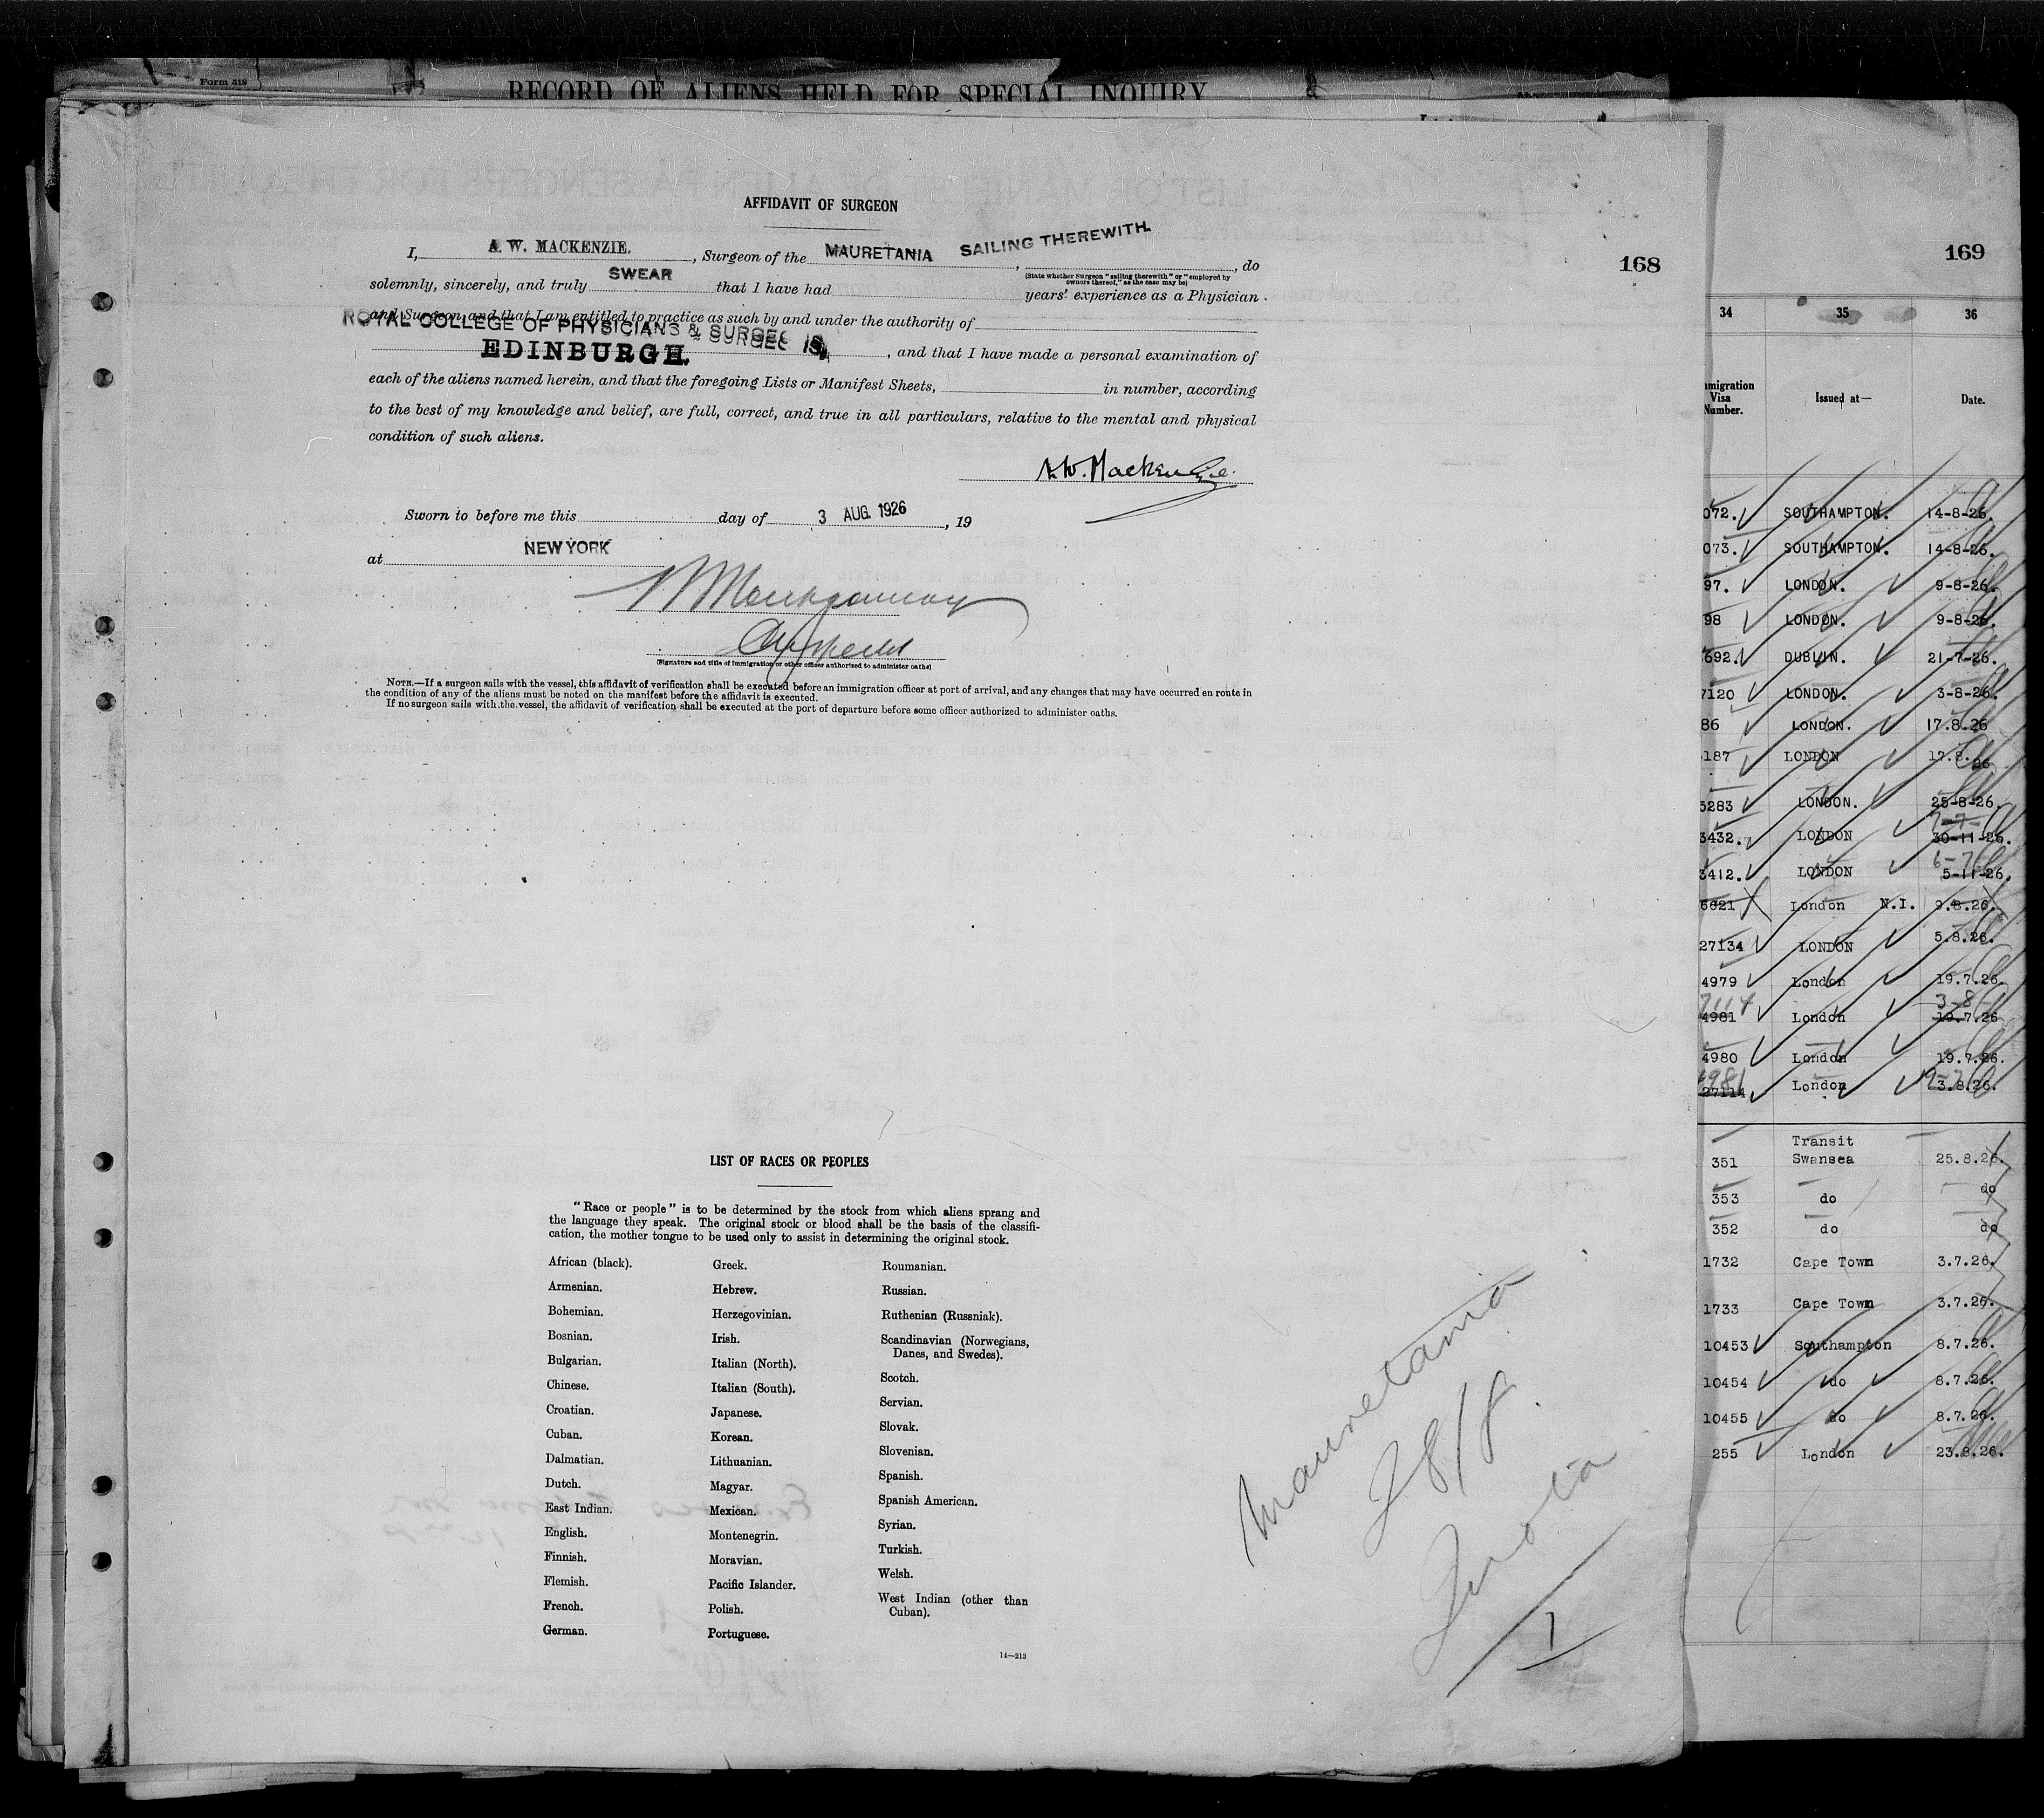 Form 518
RECORD OF ALIENS HELD FOR SPECIAL INQUIRY
168
AFFIDAVIT OF SURGEON
I, A. W. MACKENZIE. , Surgeon of the MAURETANIA , SAILING THEREWITH. , do
(State whether Surgeon "sailing therewith" or "employed by
owners thereof," as the case may be)
solemnly, sincerely, and truly SWEAR that I have had years' experience as a Physician
and Surgeon and that I am entitled to practice as such by and under the authority of
ROYAL COLLEGE OF PHYSICIANS & SURGEONS
EDINBURGH. , and that I have made a personal examination of
each of the aliens named herein, and that the foregoing Lists or Manifest Sheets, in number, according
to the best of my knowledge and belief, are full, correct, and true in all particulars, relative to the mental and physical
condition of such aliens.
A.W. Mackenzie.
Sworn to before me this day of 3 AUG. 1926 , 19
at NEW YORK
(Signature and title of immigration or other officer authorized to administer oaths)
NOTE.—If a surgeon sails with the vessel, this affidavit of verification shall be executed before an immigration officer at port of arrival, and any changes that may have occurred en route in
the condition of any of the aliens must be noted on the manifest before the affidavit is executed.
If no surgeon sails with the vessel, the affidavit of verification shall be executed at the port of departure before some officer authorized to administer oaths.
LIST OF RACES OR PEOPLES
"Race or people" is to be determined by the stock from which aliens sprang and
the language they speak. The original stock or blood shall be the basis of the classifi-
cation, the mother tongue to be used only to assist in determining the original stock.
African (black).
Armenian.
Bohemian.
Bosnian.
Bulgarian.
Chinese.
Croatian.
Cuban.
Dalmatian.
Dutch.
East Indian.
English.
Finnish.
Flemish.
French.
German.
Greek.
Hebrew.
Herzegovinian.
Irish.
Italian (North).
Italian (South).
Japanese.
Korean.
Lithuanian.
Magyar.
Mexican.
Montenegrin.
Moravian.
Pacific Islander.
Polish.
Portuguese.
Roumanian.
Russian.
Ruthenian (Russniak).
Scandinavian (Norwegians,
Danes, and Swedes).
Scotch.
Servian.
Slovak.
Slovenian.
Spanish.
Spanish American.
Syrian.
Turkish.
Welsh.
West Indian (other than
Cuban).
14—213
Mauretania
28/8
1
169
34 35 36
mmigration
Visa
Number.
Issued at—
Date.
072. SOUTHAMPTON. 14-8-26.
073. SOUTHAMPTON. 14-8-26.
97. LONDON. 9-8-26.
98 LONDON. 9-8-26.
692. DUBLIN. 21-7-26.
7120 LONDON. 3-8-26.
86 LONDON. 17.8.26
187 LONDON 17.8.26
5283 LONDON. 25-8-26.
3432. LONDON 30-11-26.
6-7
3412. LONDON 5-11-26.
6621 London N.I. 9.8.26.
27134 LONDON 5.8.26.
4979 London 19.7.26.
7114 3-8-
4981 London 19.7.26
4980 London 19.7.26.
4981
27114 London 23.8.26.
Transit
351 Swansea 25.8.26.
353 do do
352 do do
1732 Cape Town 3.7.26.
1733 Cape Town 3.7.26.
10453 Southampton 8.7.26.
10454 do 8.7.26.
10455 do 8.7.26.
255 London 23.8.26.